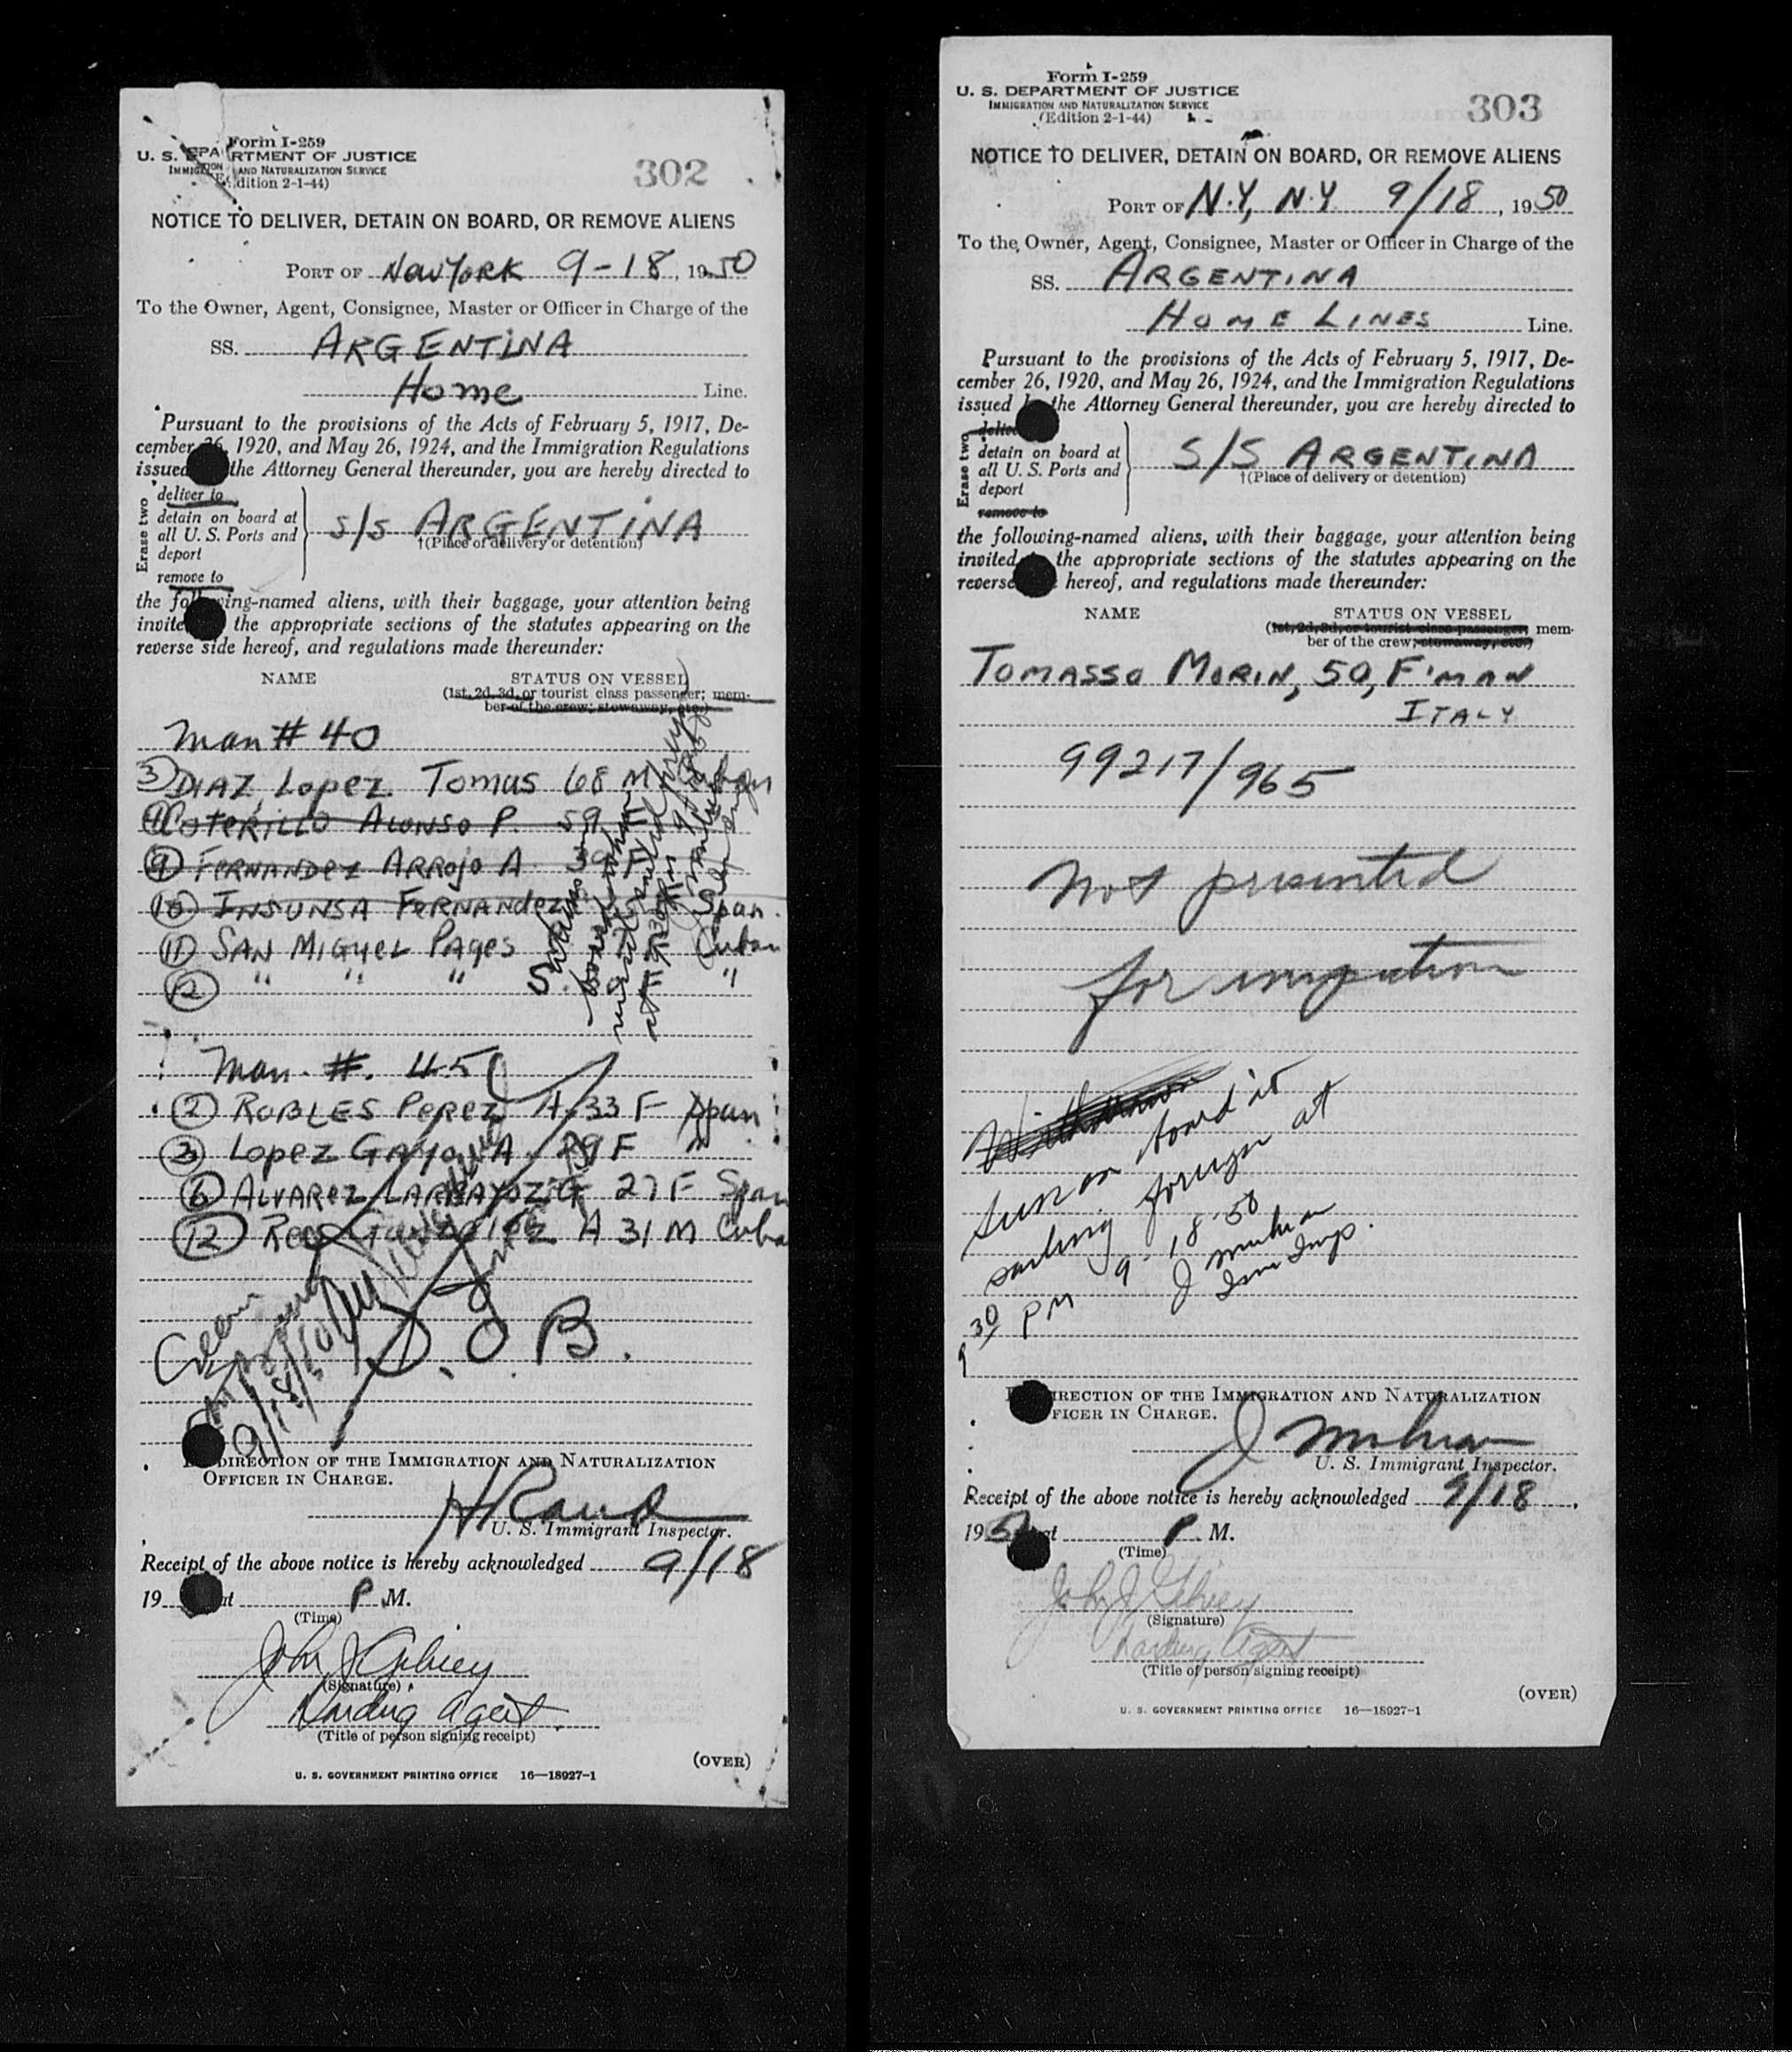 Form I-259
U. S. DEPARTMENT OF JUSTICE
IMMIGRATION AND NATURALIZATION SERVICE
(Edition 2-1-44)
302
NOTICE TO DELIVER, DETAIN ON BOARD, OR REMOVE ALIENS
PORT OF New York 9-18, 1950
To the Owner, Agent, Consignee, Master or Officer in Charge of the
SS. ARGENTINA
Home Line.
Pursuant to the provisions of the Acts of February 5, 1917, De-
cember 26, 1920, and May 26, 1924, and the Immigration Regulations
issued the Attorney General thereunder, you are hereby directed to
Erase two
deliver to
detain on board at
all U. S. Ports and
deport
remove to
S/S ARGENTINA
†(Place of delivery or detention)
the following-named aliens, with their baggage, your attention being
invited the appropriate sections of the statutes appearing on the
reverse side hereof, and regulations made thereunder:
NAME STATUS ON VESSEL
(1st, 2d, 3d, or tourist class passenger; mem-
ber of the crew; stowaway, etc.)
Man # 40
3 DIAZ Lopez Tomas 68 M
COTERILLO ALONSO P. 59 F
9 FERNANDEZ ARROJO A. 39 F
10 INSUNSA FERNANDEZ Span.
11 SAN MIGUEL PAGES Cuban
12 " " " "
Man. #. 45
2 ROBLES PEREZ A 33 F Span
3 Lopez GAYO A 29 F "
6 ALVAREZ G 27 F Span
12 A 31 M Cuba
S. O. B.
9/18/50
DIRECTION OF THE IMMIGRATION AND NATURALIZATION
OFFICER IN CHARGE.
H Rand
U. S. Immigrant Inspector.
Receipt of the above notice is hereby acknowledged 9/18
19 at P. M.
(Time)
John J Gilvey
(Signature)
Landing Agent
(Title of person signing receipt)
(OVER)
U. S. GOVERNMENT PRINTING OFFICE 16—18927-1
Form I-259
U. S. DEPARTMENT OF JUSTICE
IMMIGRATION AND NATURALIZATION SERVICE
(Edition 2-1-44)
303
NOTICE TO DELIVER, DETAIN ON BOARD, OR REMOVE ALIENS
PORT OF N.Y, N.Y 9/18, 1950
To the Owner, Agent, Consignee, Master or Officer in Charge of the
SS. ARGENTINA
HOME LINES Line.
Pursuant to the provisions of the Acts of February 5, 1917, De-
cember 26, 1920, and May 26, 1924, and the Immigration Regulations
issued by the Attorney General thereunder, you are hereby directed to
Erase two
detain on board at
all U. S. Ports and
deport
remove to
S/S ARGENTINA
†(Place of delivery or detention)
the following-named aliens, with their baggage, your attention being
invited the appropriate sections of the statutes appearing on the
reverse hereof, and regulations made thereunder:
NAME STATUS ON VESSEL
(1st, 2d, 3d, or tourist class passenger; mem-
ber of the crew; stowaway, etc.)
TOMASSO MORIN, 50, F'MAN
ITALY
99217/965
Not presented
for inspection
Seen on board at
sailing foreign at
9 30 PM 9-18-50
J
Imm Insp.
DIRECTION OF THE IMMIGRATION AND NATURALIZATION
OFFICER IN CHARGE.
U. S. Immigrant Inspector.
Receipt of the above notice is hereby acknowledged 9/18,
195 at P. M.
(Time)
John J Gilvey
(Signature)
Landing Agent
(Title of person signing receipt)
(OVER)
U. S. GOVERNMENT PRINTING OFFICE 16—18927-1